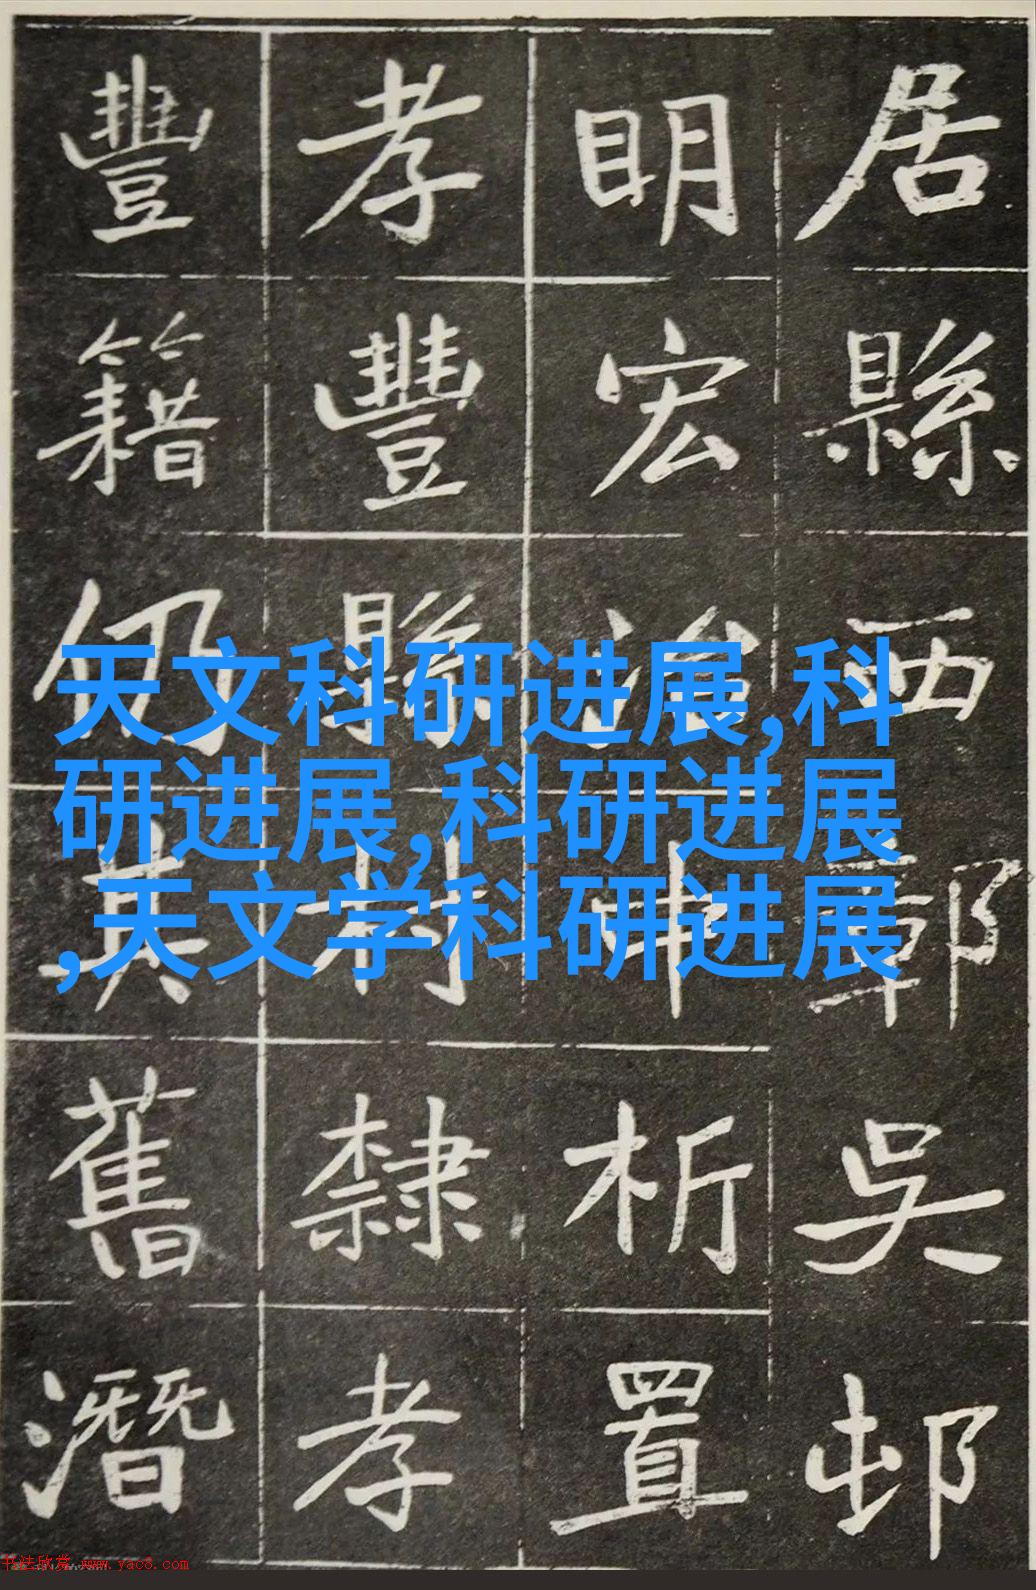 居縣西鄣吳邨
明宏治中析置
孝豐縣村隸孝
豐籍仍其舊潛
天文科研进展,科
研进展,科研进展
,天文学科研进展
书法欣赏 www.yac8.com